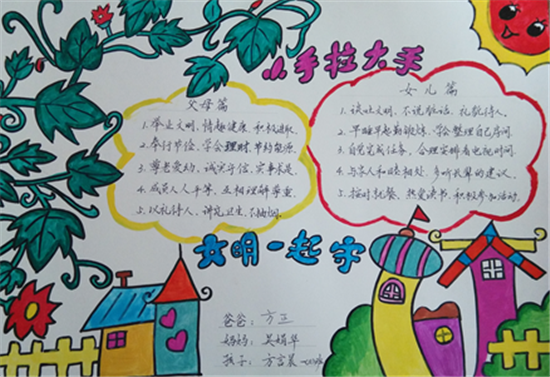 小手拉大手
父母篇
1. 举止文明,情趣健康,积极进取.
2. 奉行节俭,学会理财,节约能源.
3. 尊老爱幼,诚实守信,实事求是.
4. 成员人人平等,互相理解尊重.
5. 以礼待人,讲究卫生,不抽烟.
女儿篇
1. 谈吐文明,不说脏话,礼貌待人.
2. 早睡早起勤锻炼,学会整理自己房间.
3. 自觉完成任务,合理安排看电视时间.
4. 与家人和睦相处,多听长辈的建议.
5. 按时就餐,热爱读书,积极参加活动.
文明一起守
爸爸:方三
妈妈:吴娟华
孩子:方言